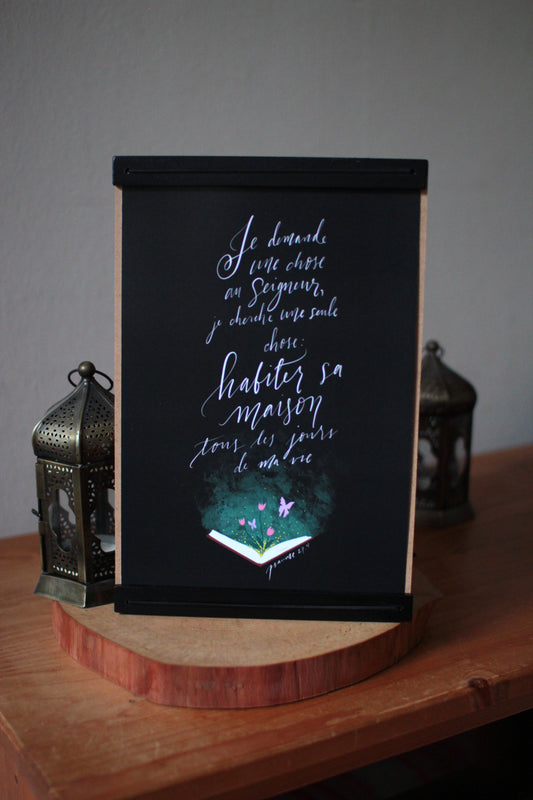 Je demande
une chose
au Seigneur,
je cherche une seule
chose:
habiter sa
maison
tous les jours
de ma vie
psaume 27.4